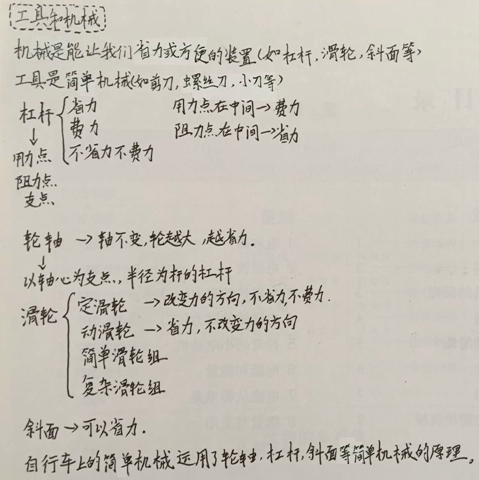 工具和机械
机械是能让我们省力或方便的装置(如杠杆,滑轮,斜面等)
工具是简单机械(如剪刀,螺丝刀,小刀等)
杠杆 省力 用力点在中间→费力
费力 阻力点在中间→省力
不省力不费力
↓
用力点
阻力点
支点
轮轴 →轴不变,轮越大,越省力.
↓
以轴心为支点,半径为杆的杠杆
滑轮 定滑轮 →改变力的方向,不省力不费力.
动滑轮 →省力,不改变力的方向
简单滑轮组
复杂滑轮组
斜面→可以省力.
自行车上的简单机械运用了轮轴,杠杆,斜面等简单机械的原理。